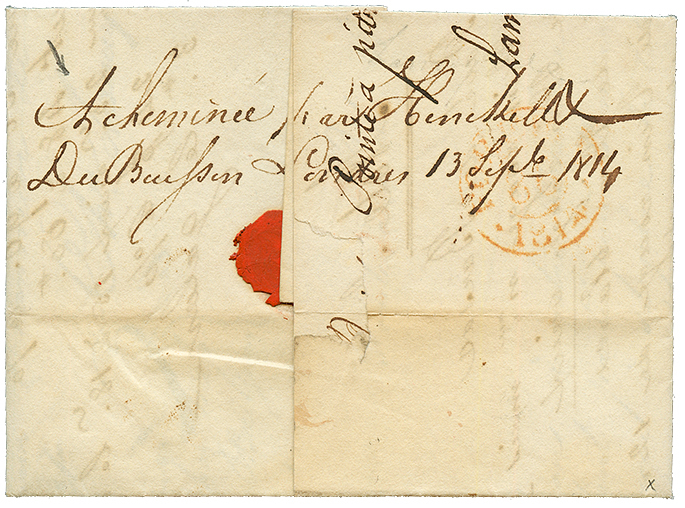 Acheminée par Henckell &
Du Buisson Londres 13 Septe 1814
Pointe à pit
Lam
1814
x